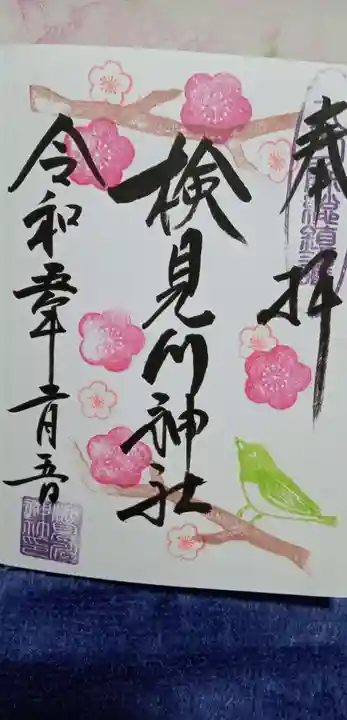 奉拝
検見川神社
令和五年二月五日